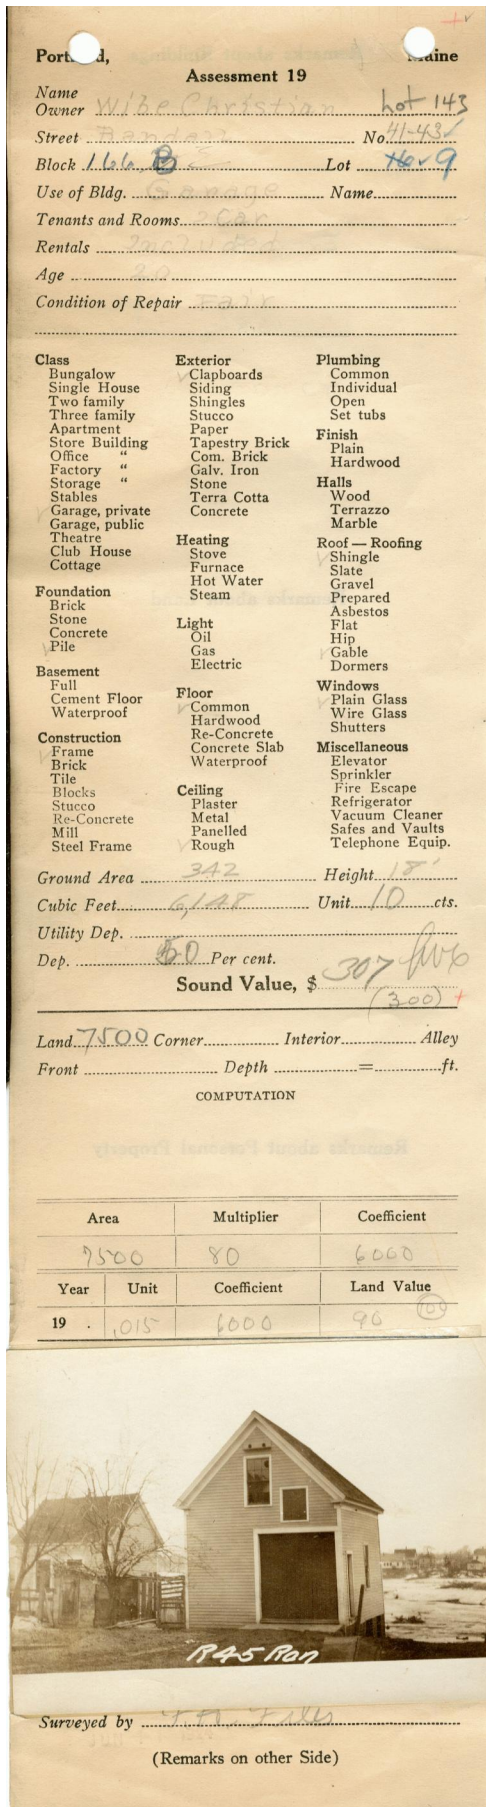 Portland, Maine
Assessment 19
Name
Owner Wibe Christian Lot 143
Street Randall No. 41-43
Block 166 B Lot 16 9
Use of Bldg. Garage Name
Tenants and Rooms 2 Car
Rentals Included
Age 20
Condition of Repair Fair
Class
Bungalow
Single House
Two family
Three family
Apartment
Store Building
Office "
Factory "
Storage "
Stables
✓ Garage, private
Garage, public
Theatre
Club House
Cottage
Foundation
Brick
Stone
Concrete
✓ Pile
Basement
Full
Cement Floor
Waterproof
Construction
✓ Frame
Brick
Tile
Blocks
Stucco
Re-Concrete
Mill
Steel Frame
Exterior
✓ Clapboards
Siding
Shingles
Stucco
Paper
Tapestry Brick
Com. Brick
Galv. Iron
Stone
Terra Cotta
Concrete
Heating
Stove
Furnace
Hot Water
Steam
Light
Oil
Gas
Electric
Floor
✓ Common
Hardwood
Re-Concrete
Concrete Slab
Waterproof
Ceiling
Plaster
Metal
Panelled
✓ Rough
Plumbing
Common
Individual
Open
Set tubs
Finish
Plain
Hardwood
Halls
Wood
Terrazzo
Marble
Roof — Roofing
✓ Shingle
Slate
Gravel
Prepared
Asbestos
Flat
Hip
✓ Gable
Dormers
Windows
✓ Plain Glass
Wire Glass
Shutters
Miscellaneous
Elevator
Sprinkler
Fire Escape
Refrigerator
Vacuum Cleaner
Safes and Vaults
Telephone Equip.
Ground Area 342 Height 18'
Cubic Feet 6,148 Unit 10 cts.
Utility Dep.
Dep. 50 Per cent.
Sound Value, $ 307
(300) +
Land 7500 Corner Interior Alley
Front Depth = ft.
COMPUTATION
Area Multiplier Coefficient
7500 80 6000
Year Unit Coefficient Land Value
19 . .015 6000 90 (100)
R45 Ran
Surveyed by F.A. Files
(Remarks on other Side)